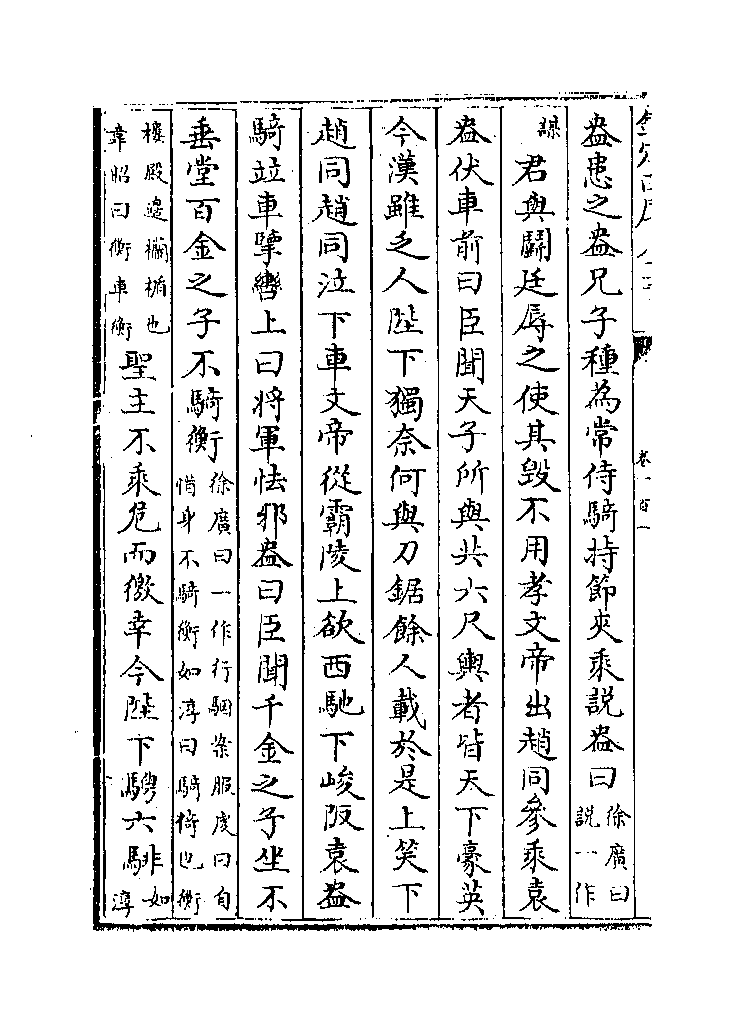 卷一百一
盎患之盎兄子種為常侍騎持節夾乘説盎曰徐廣曰説一作
謀君與鬭廷辱之使其毀不用孝文帝出趙同參乘袁
盎伏車前曰臣聞天子所與共六尺輿者皆天下豪英
今漢雖乏人陛下獨奈何與刀鋸餘人載於是上笑下
趙同趙同泣下車文帝從霸陵上欲西馳下峻阪袁盎
騎竝車擥轡上曰將軍怯邪盎曰臣聞千金之子坐不
垂堂百金之子不騎衡徐廣曰一作行駰案服虔曰自惜身不騎衡如淳曰騎倚也衡
樓殿邊欄楯也韋昭曰衡車衡聖主不乘危而徼幸今陛下騁六騑如淳